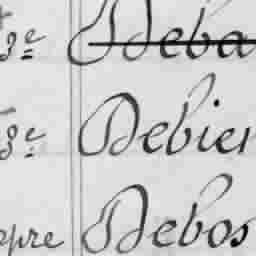 8e Deba
8e Debier
epre Debos